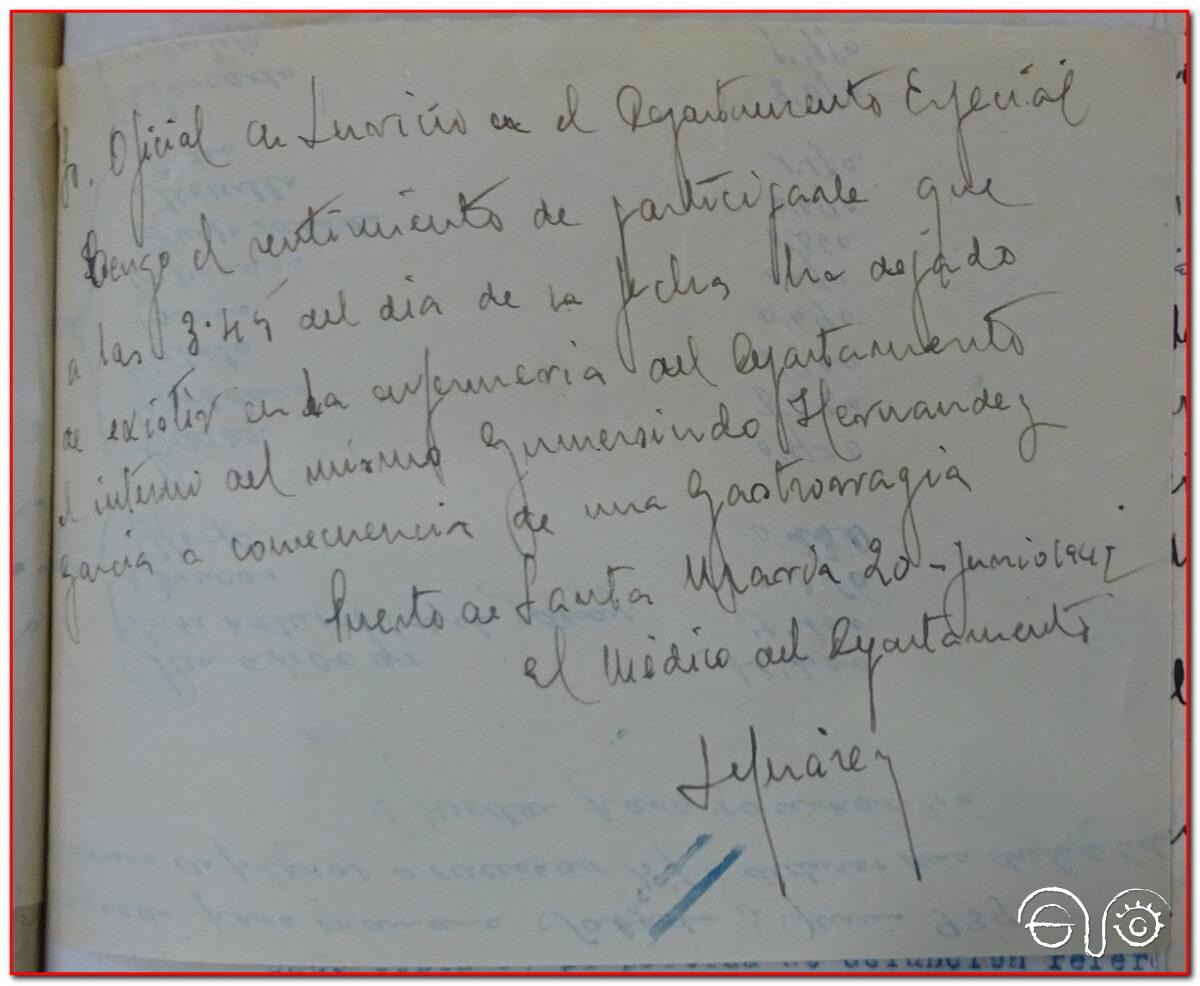 Sr. Oficial de Servicio en el Departamento Especial
Tengo el sentimiento de participarle que
a las 3.45 del dia de la fecha ha dejado
de existir en la enfermeria del Departamento
el interno del mismo Gumersindo Hernandez
Garcia a consecuencia de una Gastrorragia
Puerto de Santa Maria 20-Junio 1941
el Médico del Departamento